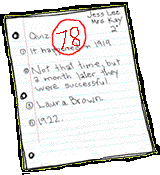 Jess Lee
Mrs. Kay
2°
Quiz 78
① It happened in 1919.
② Not that time, but
a month later they
were successful.
③ Laura Brown.
④ 1922.